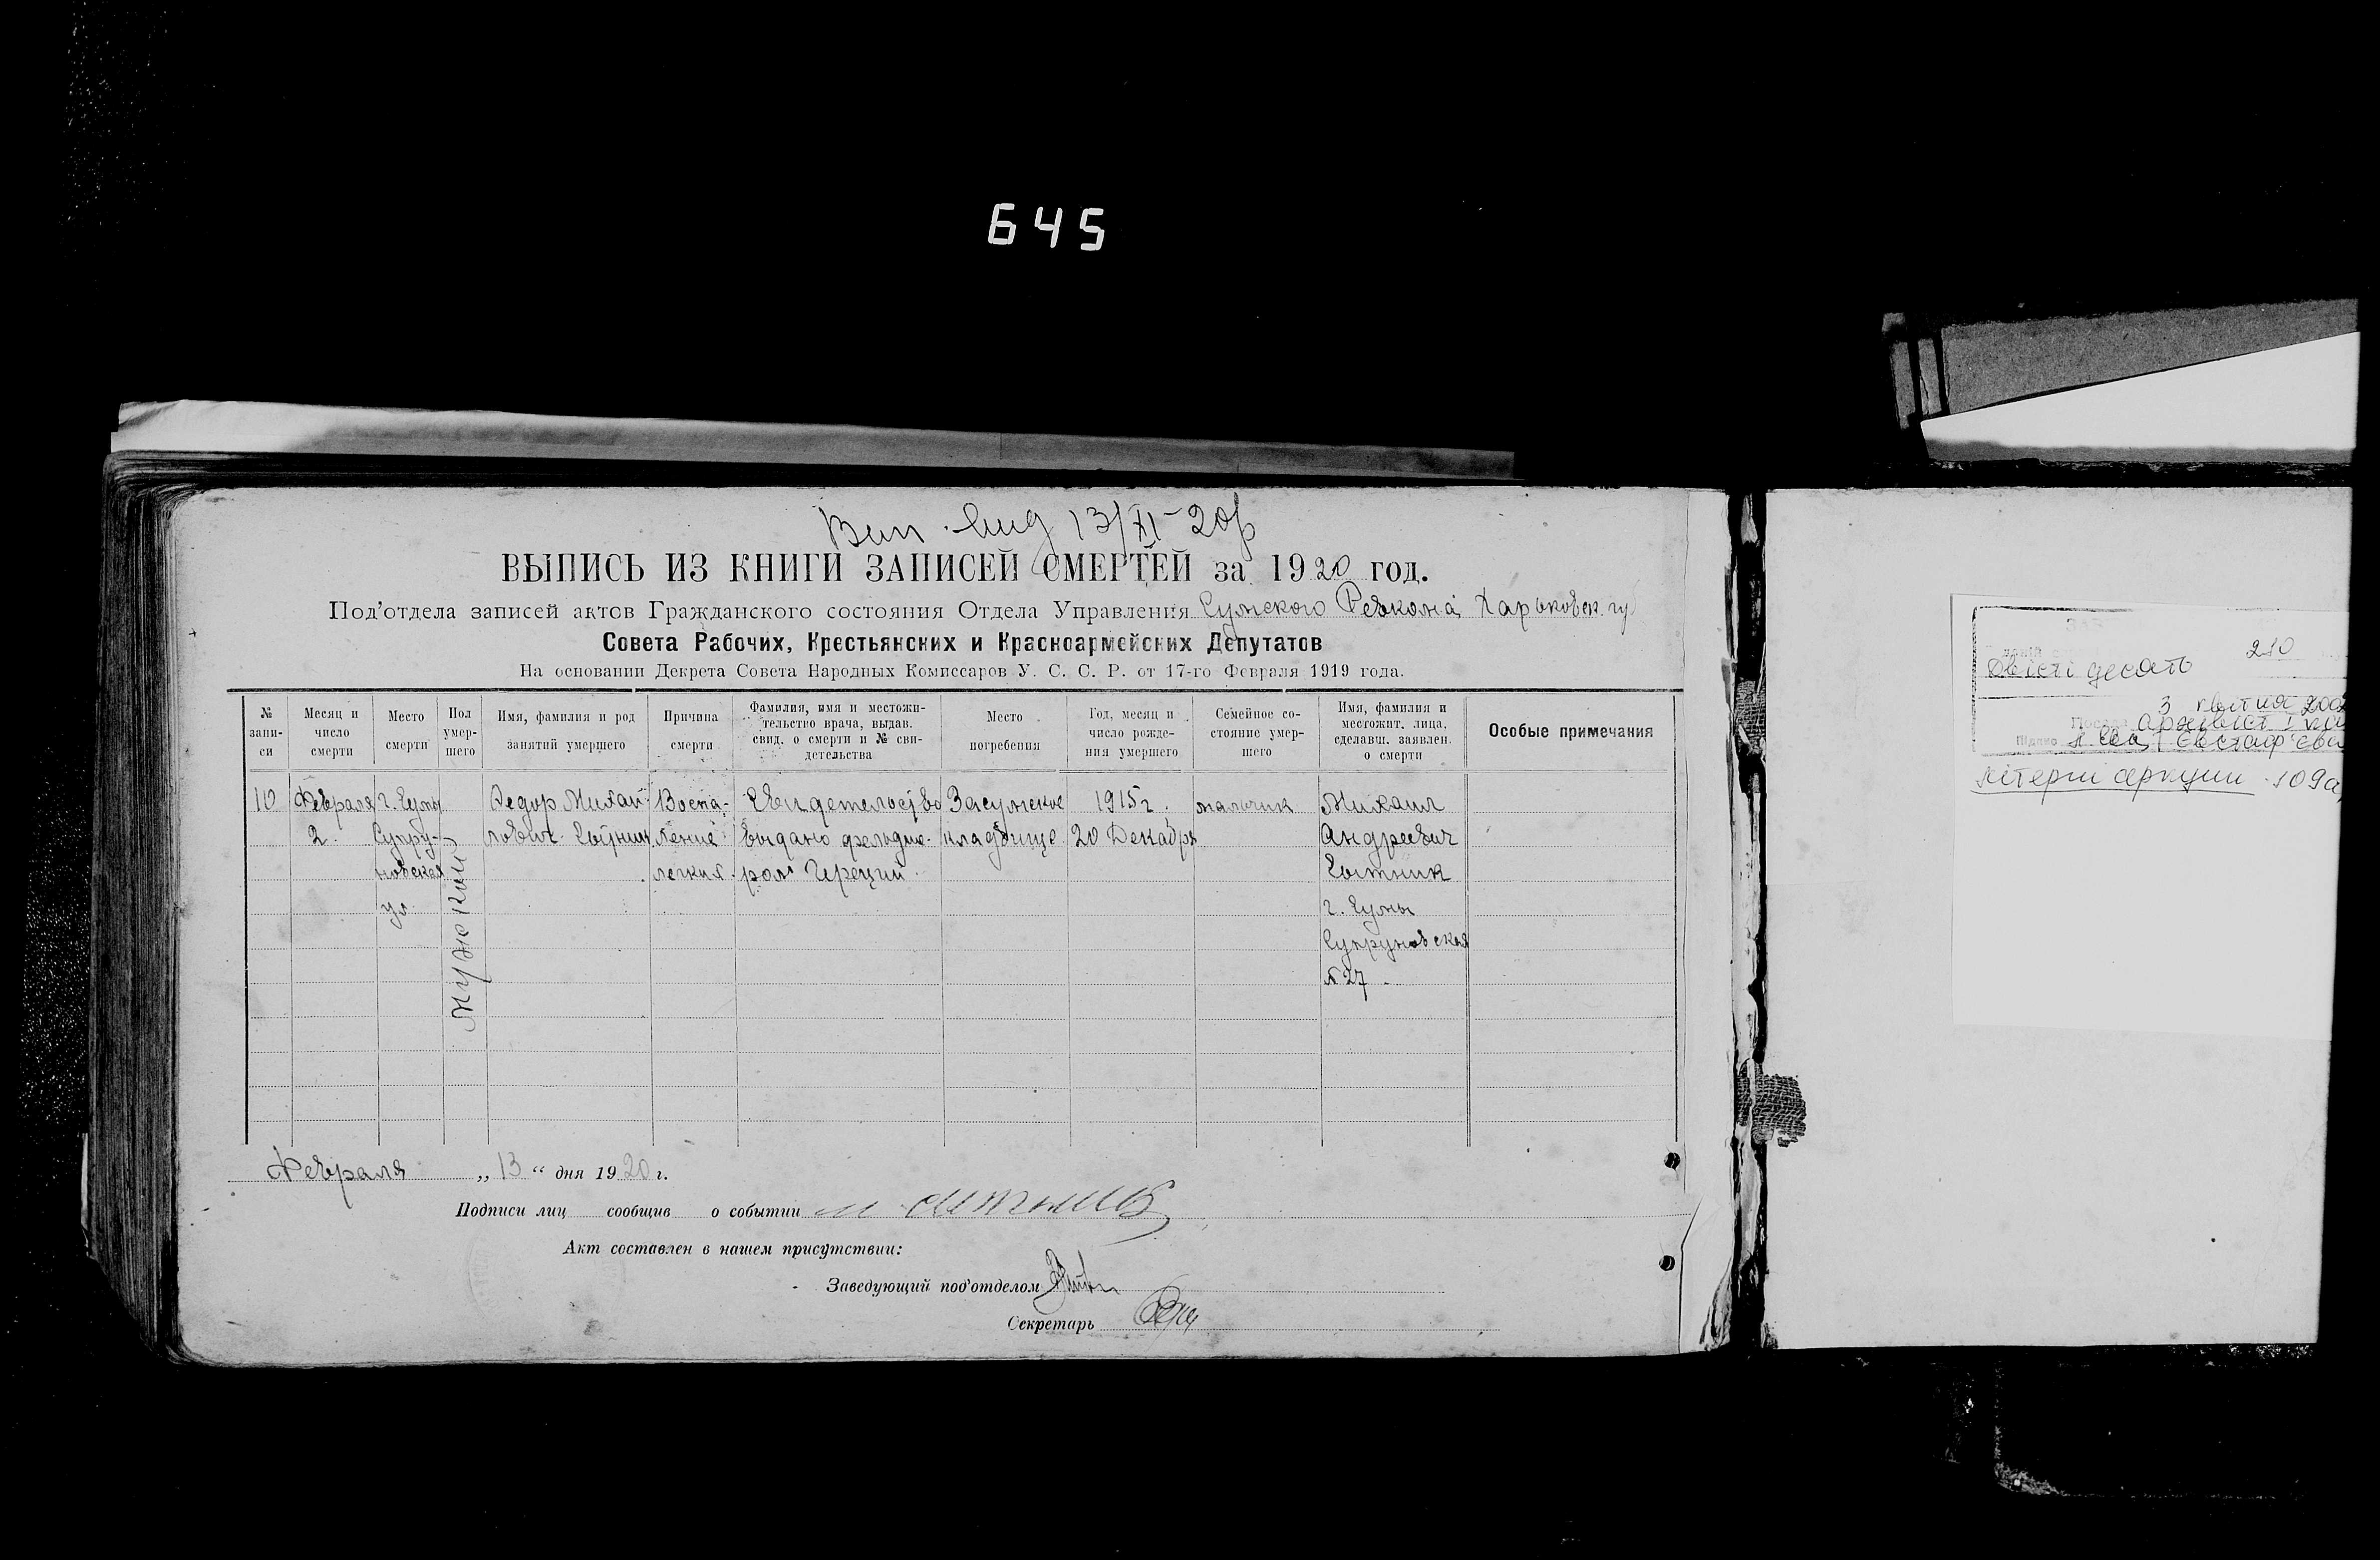 645
Вип. вид 13/XI-20р
ВЫПИСЬ ИЗ КНИГИ ЗАПИСЕЙ СМЕРТЕЙ за 1920 год.
Под'отдела записей актов Гражданского состояния Отдела Управления Сумского Ревкома Харьковск. гу
Совета Рабочих, Крестьянских и Красноармейских Депутатов
На основании Декрета Совета Народных Комиссаров У. С. С. Р. от 17-го Февраля 1919 года.
№ запи-си
Месяц и число смерти
Место смерти
Пол умер-шего
Имя, фамилия и род занятий умершего
Причина смерти
Фамилия, имя и местожи-тельство врача, выдав. свид. о смерти и № сви-детельства
Место погребения
Год, месяц и число рожде-ния умершего
Семейное со-стояние умер-шего
Имя, фамилия и местожит. лица, сделавш. заявлен. о смерти
Особые примечания
10
Февраля
2.
г. Сумы
Супру-
новская
ул.
мужской
Федор Михай-
лович Сытник
Воспа-
ление
легких.
Свидетельство
выдано фельдше-
ром
Засумское
кладбище
1915 г.
20 Декабря
мальчик
Михаил
Андреевич
Сытник
г. Сумы
Супруновская
№ 27
Февраля „13“ дня 1920 г.
Подписи лиц сообщив о событии м сытник
Акт составлен в нашем присутствии:
Заведующий под'отделом
Секретарь
210
Двісті десять
3 квітня 200
архівіст І
Євстаф'єва
літерні аркуши 109а,